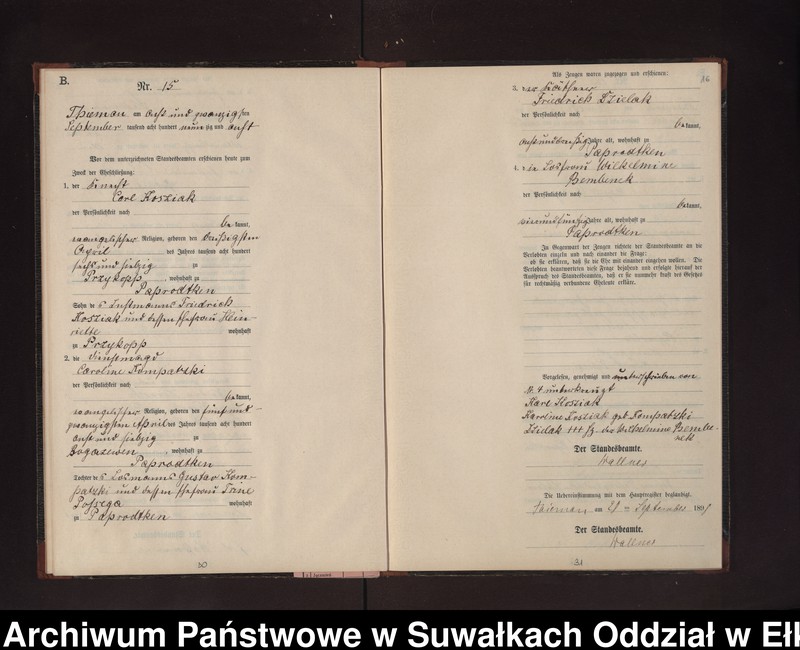 B.
Nr. 15
Thieman am acht und zwanzigsten
September tausend acht hundert neun zig und acht
Vor dem unterzeichneten Standesbeamten erschienen heute zum
Zweck der Eheschließung:
1. der Knecht
Carl Kosziak
der Persönlichkeit nach
be kannt,
evangelischer Religion, geboren den dreißigsten
April des Jahres tausend acht hundert
sechs und siebzig zu
Przykopp, wohnhaft
zu Paprodtken
Sohn de s Losmanns Friedrich
Kosziak und dessen Ehefrau Hein-
riette wohnhaft
zu Przykopp
2. die Dienstmagd
Caroline
der Persönlichkeit nach
be kannt,
evangelischer Religion, geboren den fünf und
zwanzigsten April des Jahres tausend acht hundert
acht und siebzig zu
Bogazewen, wohnhaft
Paprodtken
Tochter de s Losmanns Gustav
und dessen Ehefrau Trine
wohnhaft
zu Paprodtken
30
Als Zeugen waren zugezogen und erschienen:
16
3. der Käthner
Friedrich Dzielak
der Persönlichkeit nach
be kannt,
acht und dreißig Jahre alt, wohnhaft zu
Paprodtken
4. die Losfrau Wilhelmine
Bembenek
der Persönlichkeit nach
be kannt,
Jahre alt, wohnhaft zu
Paprodtken
In Gegenwart der Zeugen richtete der Standesbeamte an die
Verlobten einzeln und nach einander die Frage:
ob sie erklären, daß sie die Ehe mit einander eingehen wollen. Die
Verlobten beantworteten diese Frage bejahend und erfolgte hierauf der
Ausspruch des Standesbeamten, daß er sie nunmehr kraft des Gesetzes
für rechtmäßig verbundene Eheleute erkläre.
Vorgelesen, genehmigt und unterschrieben von
N. 4 unterkreuzt
Karl Kosziak
Karoline Kosziak geb
Dzielak +++ Hz. der Wilhelmine Bembe-
nek
Der Standesbeamte.
Wallner
Die Uebereinstimmung mit dem Hauptregister beglaubigt.
Thieman, am September 189
Der Standesbeamte.
Wallner
31
Archiwum Państwowe w Suwałkach Oddział w Ełk